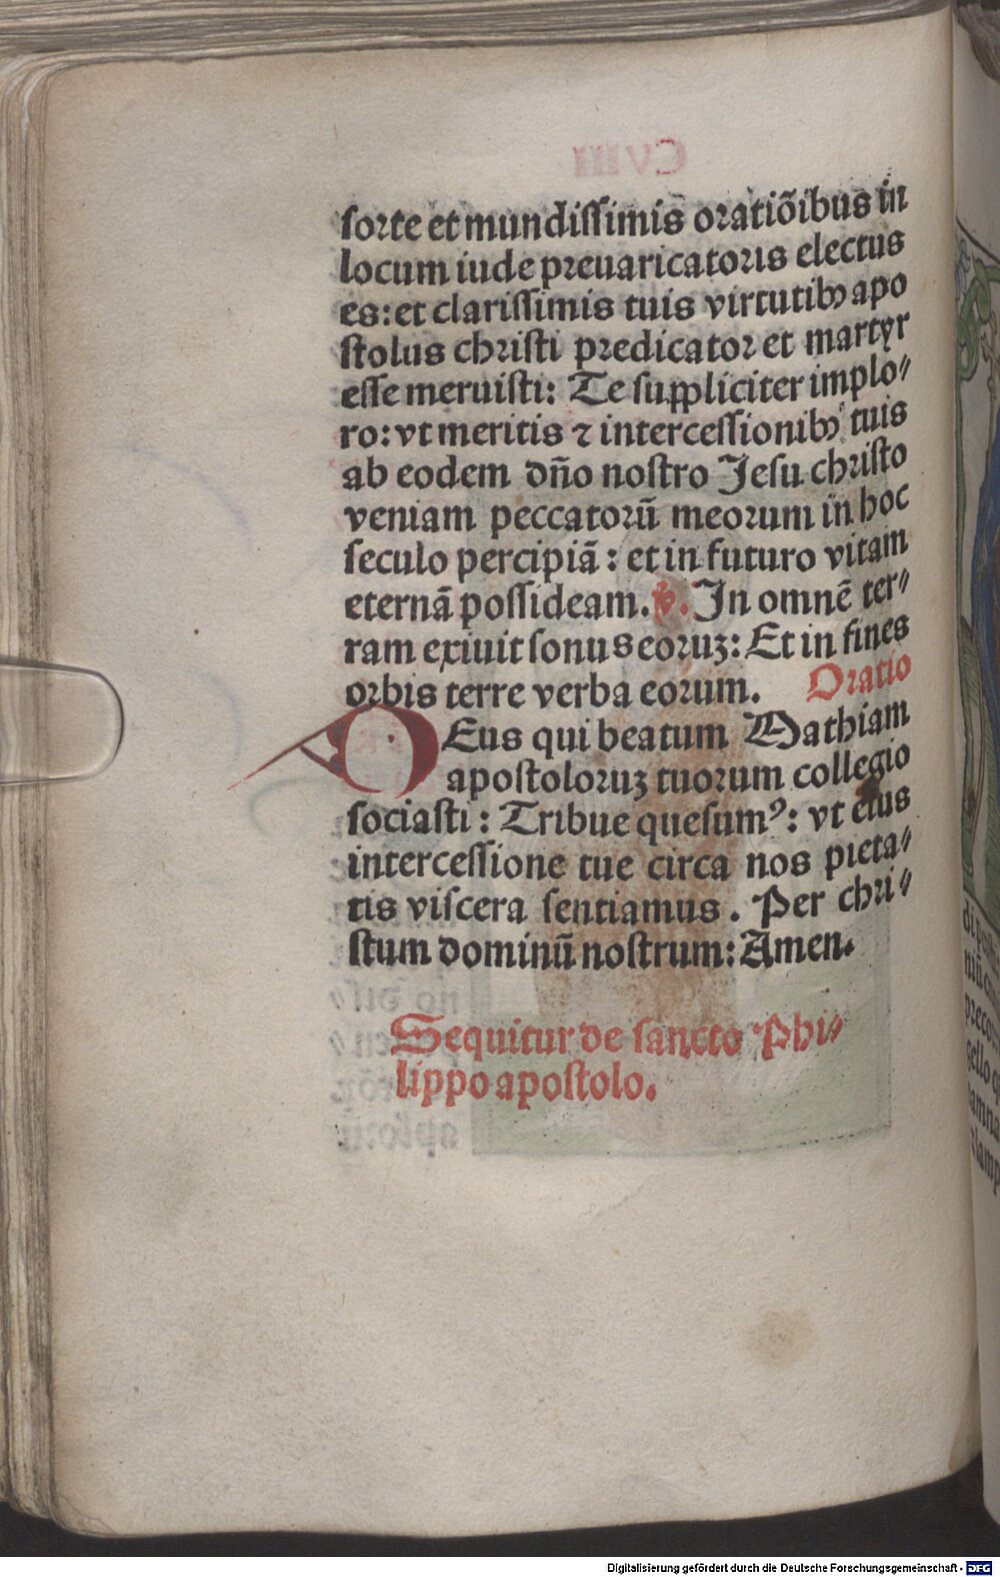 ſorte et mundiſſimis oratiõibus in
locum iude preuaricatoris electus
es: et clariſſimis tuis virtutibꝫ apo
ſtolus chriſti predicator et martyr
eſſe meruiſti: Te ſuppliciter implo⸗
ro: vt meritis ⁊ interceſſionibꝫ tuis
ab eodem dño noſtro Jeſu chriſto
veniam peccatorũ meorum in hoc
ſeculo percipiã: et in futuro vitam
eternã poſſideam. ℣. In omnẽ ter⸗
ram exiuit ſonus eoruꝫ: Et in fines
orbis terre verba eorum. Oratio
DEus qui beatum Mathiam
apoſtoloruꝫ tuorum collegio
ſociaſti: Tribue queſumꝰ: vt eius
interceſſione tue circa nos pieta⸗
tis viſcera ſentiamus. Per chri⸗
ſtum dominũ noſtrum: Amen.
Sequitur de ſancto Phi⸗
lippo apoſtolo.
Digitalisierung gefördert durch die Deutsche Forschungsgemeinschaft - DFG